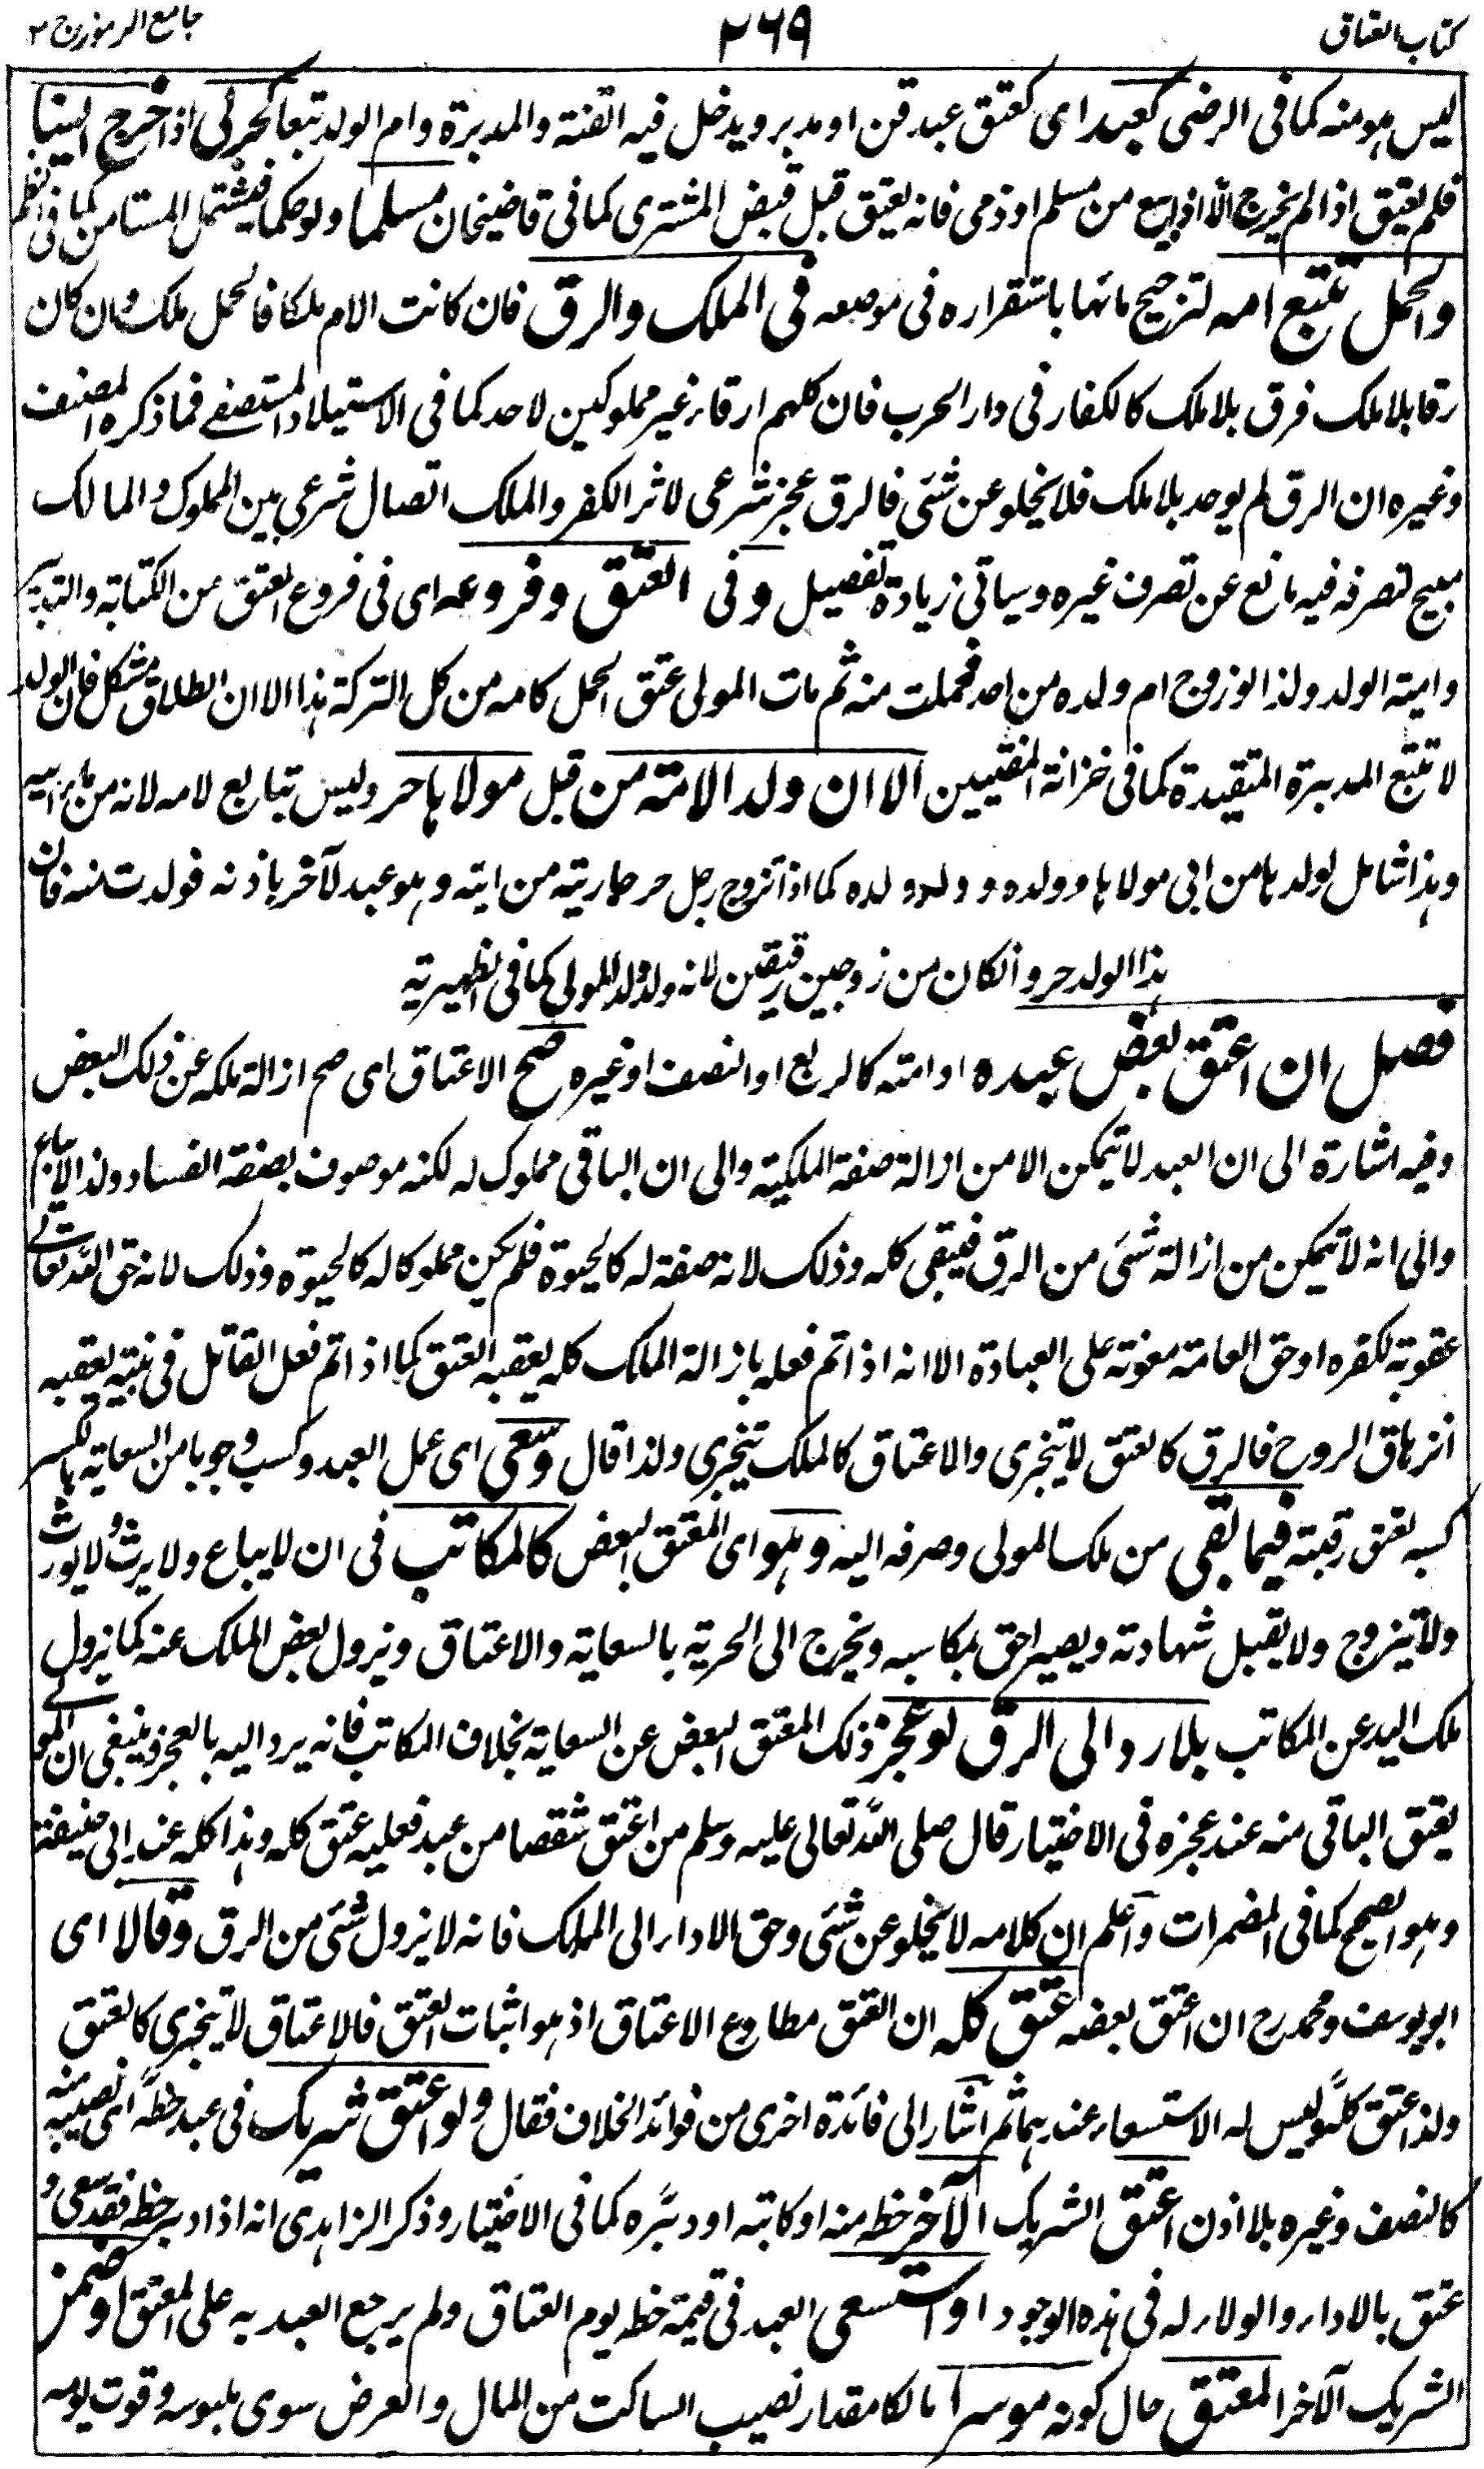 كتاب العتاق
٢٦٩
جامع الرموز ج ٢
ليس هو منه كما فى الرضى كعبد اى كعتق عبد قن او مدبر ويدخل فيه القنة والمدبرة وام الولد تبعا لحربى اذا خرج الينا
فلم يعتق اذا لم يخرج الا اذا بيع من مسلم او ذمى فانه يعتق قبل قبض المشترى كما فى قاضيخان مسلما ولو حكما فيشتمل المستامن كما فى النظم
والحمل يتبع امه لترجيح مائها باستقراره فى موضعه فى الملك والرق فان كانت الام ملكا فالحمل ملك وان كان
رقا بلا ملك فرق بلا ملك كالكفار فى دار الحرب فان كلهم ارقاء غير مملوكين لاحد كما فى الاستيلاد المستصفى فما ذكره المصنف
وغيره ان الرق لم يوجد بلا ملك فلا يخلو عن شئ فالرق عجز شرعى لاثر الكفر والملك اتصال شرعى بين المملوك والمالك
مبيح لتصرفه فيه مانع عن تصرف غيره وسياتى زيادة تفصيل وفى العتق وفروعه اى فى فروع العتق من الكتابة والتدبير
وامية الولد ولذا لو زوج ام ولده من احد فحملت منه ثم مات المولى عتق الحمل كامه من كل التركة هذا الا ان اطلاق مشكل فان الولد
لا تتبع المدبرة المتقيدة كما فى خزانة المفتيين الا ان ولد الامة من قبل مولاها حر وليس بتابع لامه لانه من ماء ابيه
وهذا شامل لولدها من ابى مولاها وولده وولد ولده كما اذا تزوج رجل حر جاريته من ابنه وهو عبد لآخر باذنه فولدت منه فان
هذا الولد حر وان كان من زوجين رقيقين لانه ولد ولد المولى كما فى الظهيرية
فصل ان اعتق بعض عبده او امته كالربع او النصف او غيره صح الاعتاق اى صح ازالة ملكه عن ذلك البعض
وفيه اشارة الى ان العبد لا يتمكن الا من ازالة صفة الملكية والى ان الباقى مملوك له لكنه موصوف بصفة الفساد ولذا لا يباع
والى انه لا يتمكن من ازالة شئ من الرق فيبقى كله وذلك لانه صفة له كالحيوة فلم يكن مملوكا له كالحيوة وذلك لانه حق الله تعالى
عقوبة لكفره او حق العامة معونة على العبادة الا انه اذا تم فعله بازالة الملك كله يعقبه العتق كما اذا تم فعل القاتل فى بنيته يعقبه
انزهاق الروح فالرق كالعتق لا يتجزى والاعتاق كالملك يتجزى ولذا قال وسعى اى عمل العبد وكسب وجوبا من السعاية بالكسر
كسبه لعتق رقبته فيما بقى من ملك المولى وصرفه اليه وهو اى المعتق البعض كالمكاتب فى ان لا يباع ولا يرث ولا يورث
ولا يتزوج ولا يقبل شهادته ويصير احق بمكاسبه ويخرج الى الحرية بالسعاية والاعتاق ويزول بعض الملك عنه كما يزول
ملك اليد عن المكاتب بلا رد الى الرق لو عجز ذلك المعتق البعض عن السعاية بخلاف المكاتب فانه يرد اليه بالعجز فينبغى ان المولى
يعتق الباقى منه عند عجزه فى الاختيار قال صلى الله تعالى عليه وسلم من اعتق شقصا من عبد فعليه عتق كله وهذا كله عند ابى حنيفة
وهو الصحيح كما فى المضمرات واعلم ان كلامه لا يخلو عن شئ وحق الاداء الى الملك فانه لا يزول شئ من الرق وقالا اى
ابو يوسف ومحمد رح ان اعتق بعضه عتق كله ان العتق مطاوع الاعتاق اذ هو اثبات العتق فالاعتاق لا يتجزى كالعتق
ولذا عتق كله وليس له الاستسعاء عندهما ثم اشار الى فائدة اخرى من فوائد الخلاف فقال ولو اعتق شريك فى عبد حظه اى نصيبه منه
كالنصف وغيره بلا اذن اعتق الشريك الآخر حظه منه او كاتبه او دبره كما فى الاختيار وذكر الزاهدى انه اذا دبر حظه فقد سعى و
عتق بالاداء والولاء له فى هذه الوجوه او استسعى العبد فى قيمة حظه يوم العتاق ولم يرجع العبد به على المعتق او ضمن
الشريك الآخر المعتق حال كونه موسرا مالكا مقدار نصيب الساكت من المال والعرض سوى ملبوسه وقوت يومه